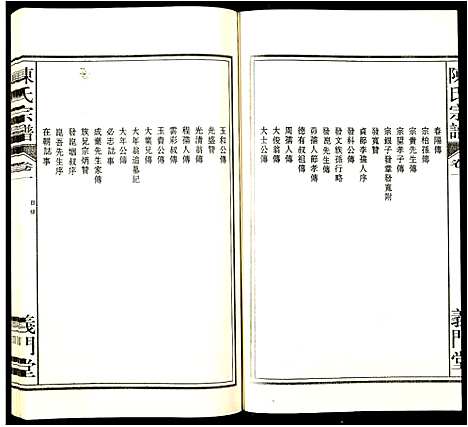 陳氏宗譜
卷一
義門堂
春陽傳
宗柏孫傳
宗貴先生傳
宗望孝子傳
宗銀子發掌發寬附
發寬贊
貞節李孺人序
發科公傳
發文族孫行略
發崑先生傳
貞孺人節孝傳
德有叔祖傳
周孺人傳
大俊翁傳
大士公傳
玉和公傳
光盛贊
光清翁傳
程孺人傳
雲彩叔傳
玉貴公傳
大業兄傳
大年翁追慕記
大年公傳
必志誌事
成業先生家傳
族兄宗炳贊
發崑姻叔序
崑吾先生序
在朝誌事
陳氏宗譜
卷一
目錄
義門堂